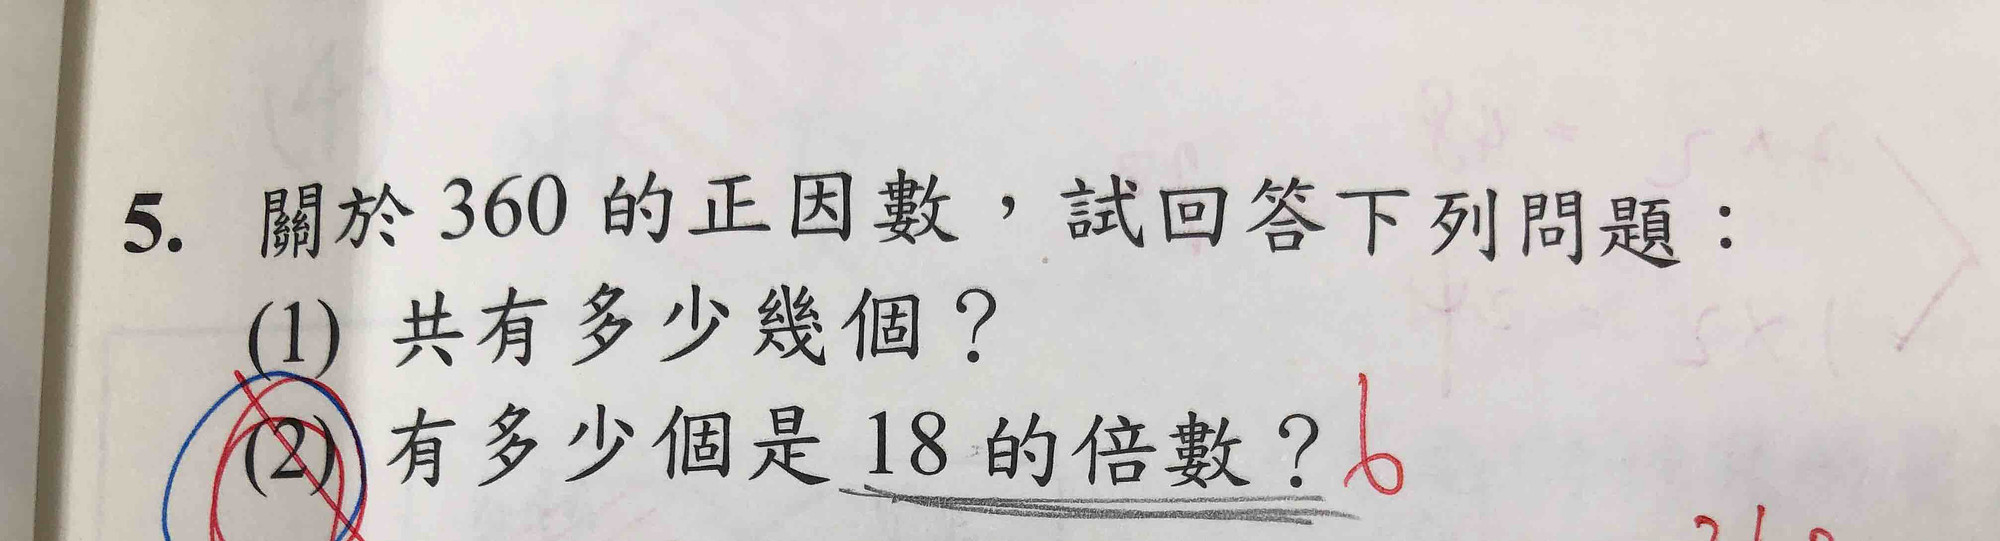 5. 關於 360 的正因數，試回答下列問題：
(1) 共有多少幾個？
(2) 有多少個是 18 的倍數？6